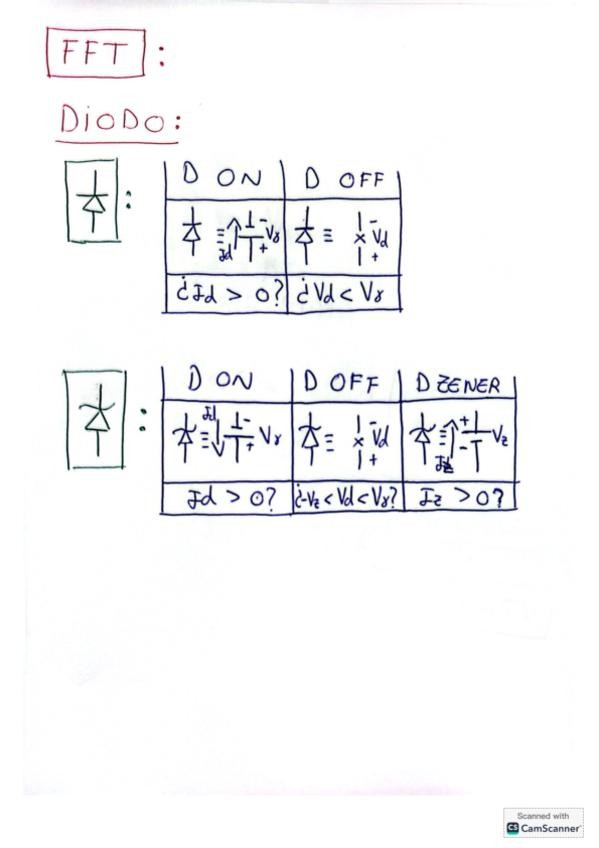 FFT:
DiODO:
D ON D OFF
Id Vγ Vd
¿Id > 0? ¿Vd < Vγ
D ON D OFF D ZENER
Id Vγ Vd Iz Vz
Id > 0? ¿-Vz < Vd < Vγ? Iz > 0?
Scanned with
CS CamScanner